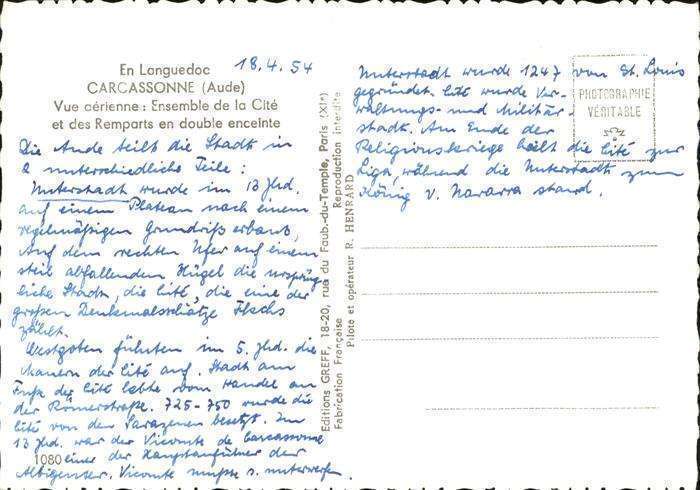 En Languedoc
18.4.54
CARCASSONNE (Aude)
Vue aérienne : Ensemble de la Cité
et des Remparts en double enceinte
Die Aude teilt die Stadt in
2 unterschiedliche Teile:
Unterstadt wurde im 13 Jhd.
auf einem Plateau nach einem
regelmäßigen Grundriß erbaut,
Auf dem rechten Ufer auf einem
steil abfallenden Hügel die ursprüng-
liche Stadt, die Cité, die eine der
großen Denkmalschätze Fkchs
zählt.
Westgoten führten im 5. Jhd. die
Mauern der Cité auf. Stadt am
Fuße der Cité lebte vom Handel an
der Römerstraße. 725-750 wurde die
Cité von den Sarazenen besetzt. Im
13 Jhd. war der Vicomte de Carcassonne
1080
einer der Hauptanführer der
Albigenser. Vicomte mußte s. unterwerfen.
Editions GREFF, 18-20, rue du Faub.-du-Temple, Paris (XIe)
Fabrication Française
Reproduction interdite
Pilote et opérateur R. HENRARD
Unterstadt wurde 1247 von St. Louis
gegründet. Cité wurde Ver-
waltungs- und Militär-
stadt. Am Ende der
Religionskriege hält die Cité zur
Liga, während die Unterstadt zum
König v. Navarra stand.
PHOTOGRAPHIE
VÉRITABLE